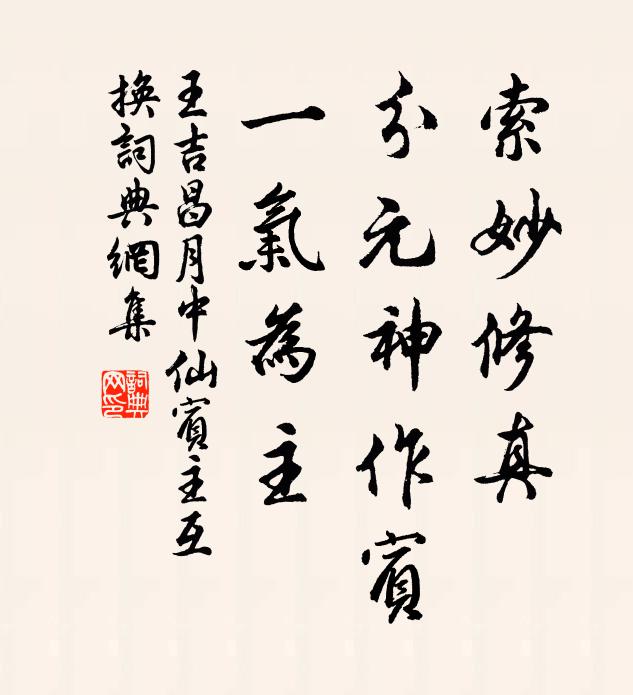 索妙修真
分元神作賓
一氣為主
王吉昌月中仙賓主互
換詞典網集
詞典网印